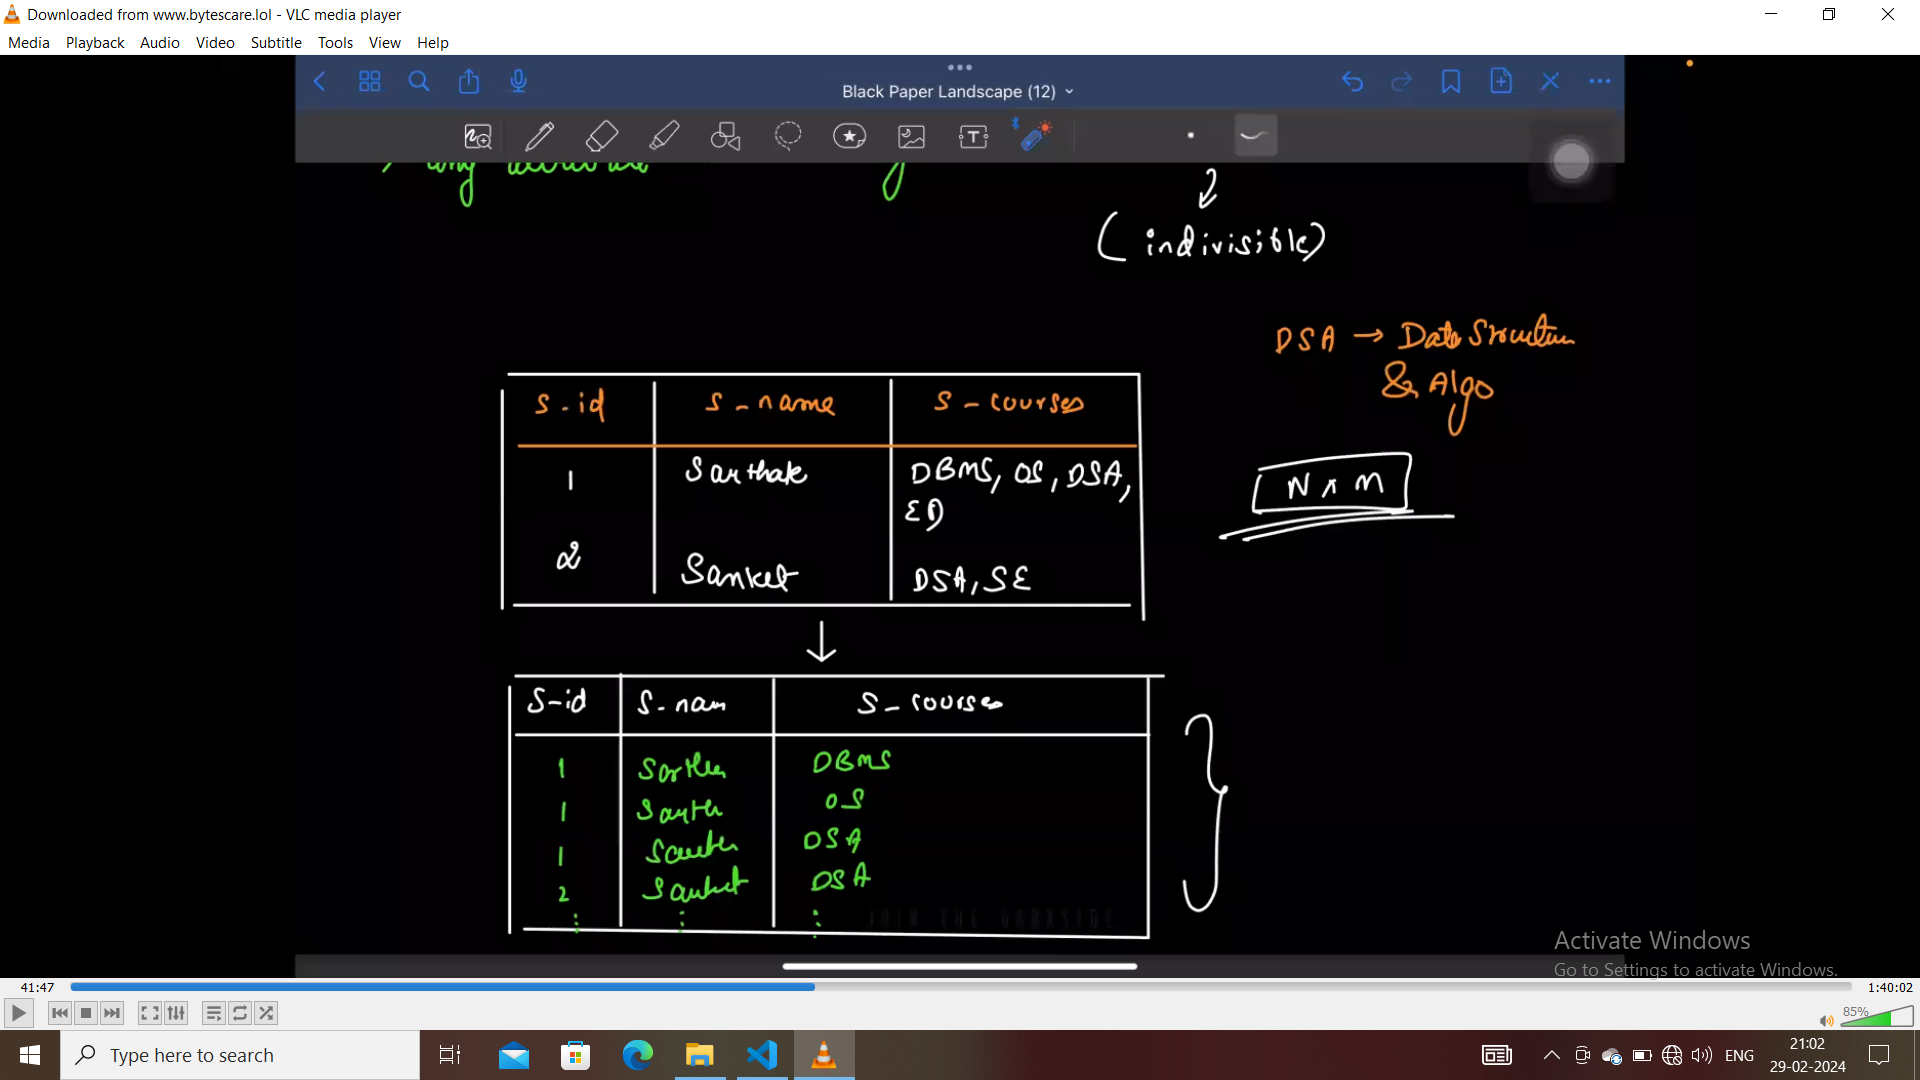 Downloaded from www.bytescare.lol - VLC media player
Media Playback Audio Video Subtitle Tools View Help
Black Paper Landscape (12)
any
(indivisible)
DSA → Data Structure
& Algo
S-id S-name S-courses
1 Sarthak DBMS, OS, DSA,
ED
2 Sanket DSA, SE
N x M
S-id S-nam S-courses
1 DBMS
1 OS
1 DSA
2 Sanket DSA
JOIN THE DARKSIDE
Activate Windows
Go to Settings to activate Windows.
41:47 1:40:02
85%
Type here to search
ENG
21:02
29-02-2024